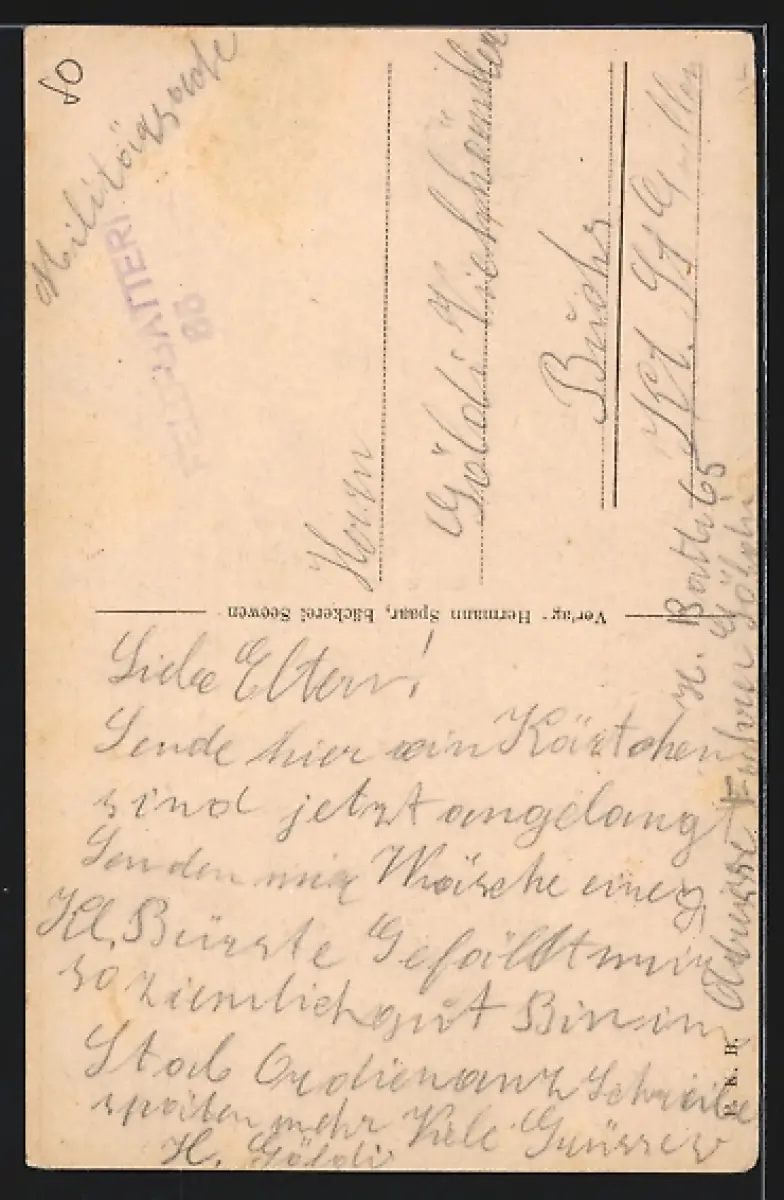 80
Militärsache
FELDBATTERI
86
Herrn
Göldi Viehhändler
Buchs
Kt. St Gallen
Verlag Hermann Spaar, bäckerei Seewen
Liebe Eltern!
Sende hier ein Kärtchen
sind jetzt angelangt
Senden mir Wäsche einen
Kl. Bürste Gefällt mir
so ziemlich gut Bin im
Stab Ordienanz Schreibe
späten mehr Viele Grüsse
H. Göldi
Adresse Göldi
H. Batt. 65
E. K. B.